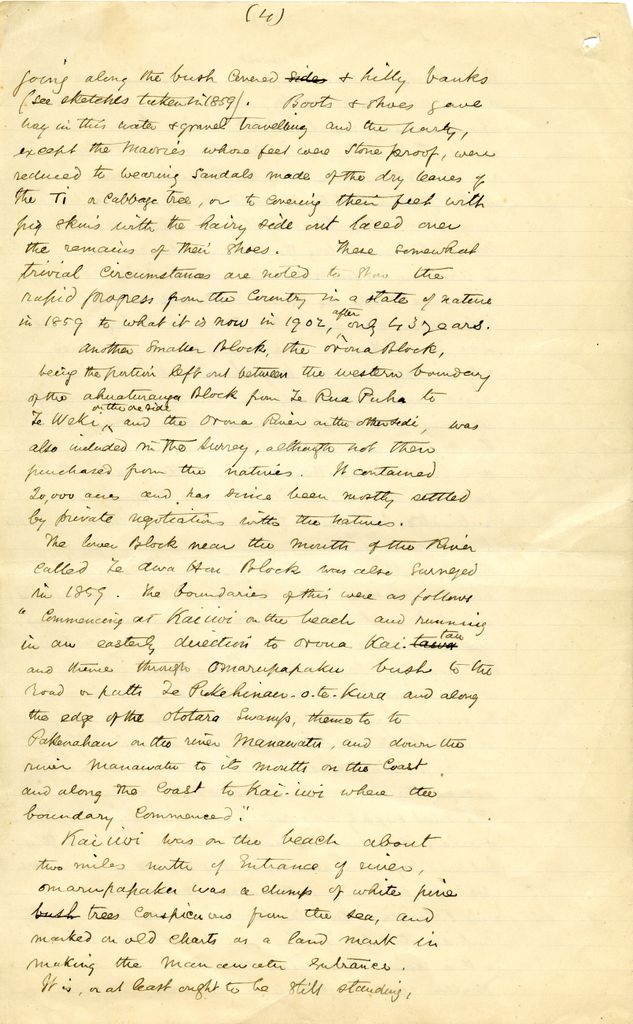 (4)
going along the bush covered sides & hilly banks
(see sketches taken in 1859). Boots & shoes gave
way in this water & gravel travelling and the party,
except the Maories whose feet were stone proof, were
reduced to wearing sandals made of the dry leaves of
the Ti or Cabbage tree, or to covering their feet with
pig skins with the hairy side out laced over
the remains of their shoes. These somewhat
trivial circumstances are noted to show the
rapid progress from the Country in a state of nature
in 1859 to what it is now in 1902, after only 43 years.
Another smaller Block, the Oroua Block,
being the portion left out between the western boundary
of the Ahuaturanga Block from Te Rua Puha to
Te Weki on the one side, and the Oroua River on the other side, was
also included in the survey, although not then
purchased from the natives. It contained
20,000 acres and has since been mostly settled
by private negotiations with the natives.
The lower Block near the mouth of the River
called Te Awa Hou Block was also surveyed
in 1859. The boundaries of this were as follows
"Commencing at Kaiiwi on the beach and running
in an easterly direction to Oroua Kai-tawa tau
and thence through Omarupapaku bush to the
road or path Te Pukehinau-o-te-Kura and along
the edge of the Ototara Swamp, thence to to
Pakenahau on the river Manawatu, and down the
river Manawatu to its mouth on the Coast
and along the Coast to Kai-iwi where the
boundary commenced."
Kaiiwi was on the beach about
two miles north of Entrance of river,
Omarupapaku was a clump of white pine
bush trees conspicuous from the sea, and
marked on old charts as a land mark in
making the Manawatu Entrance.
It is, or at least ought to be still standing,